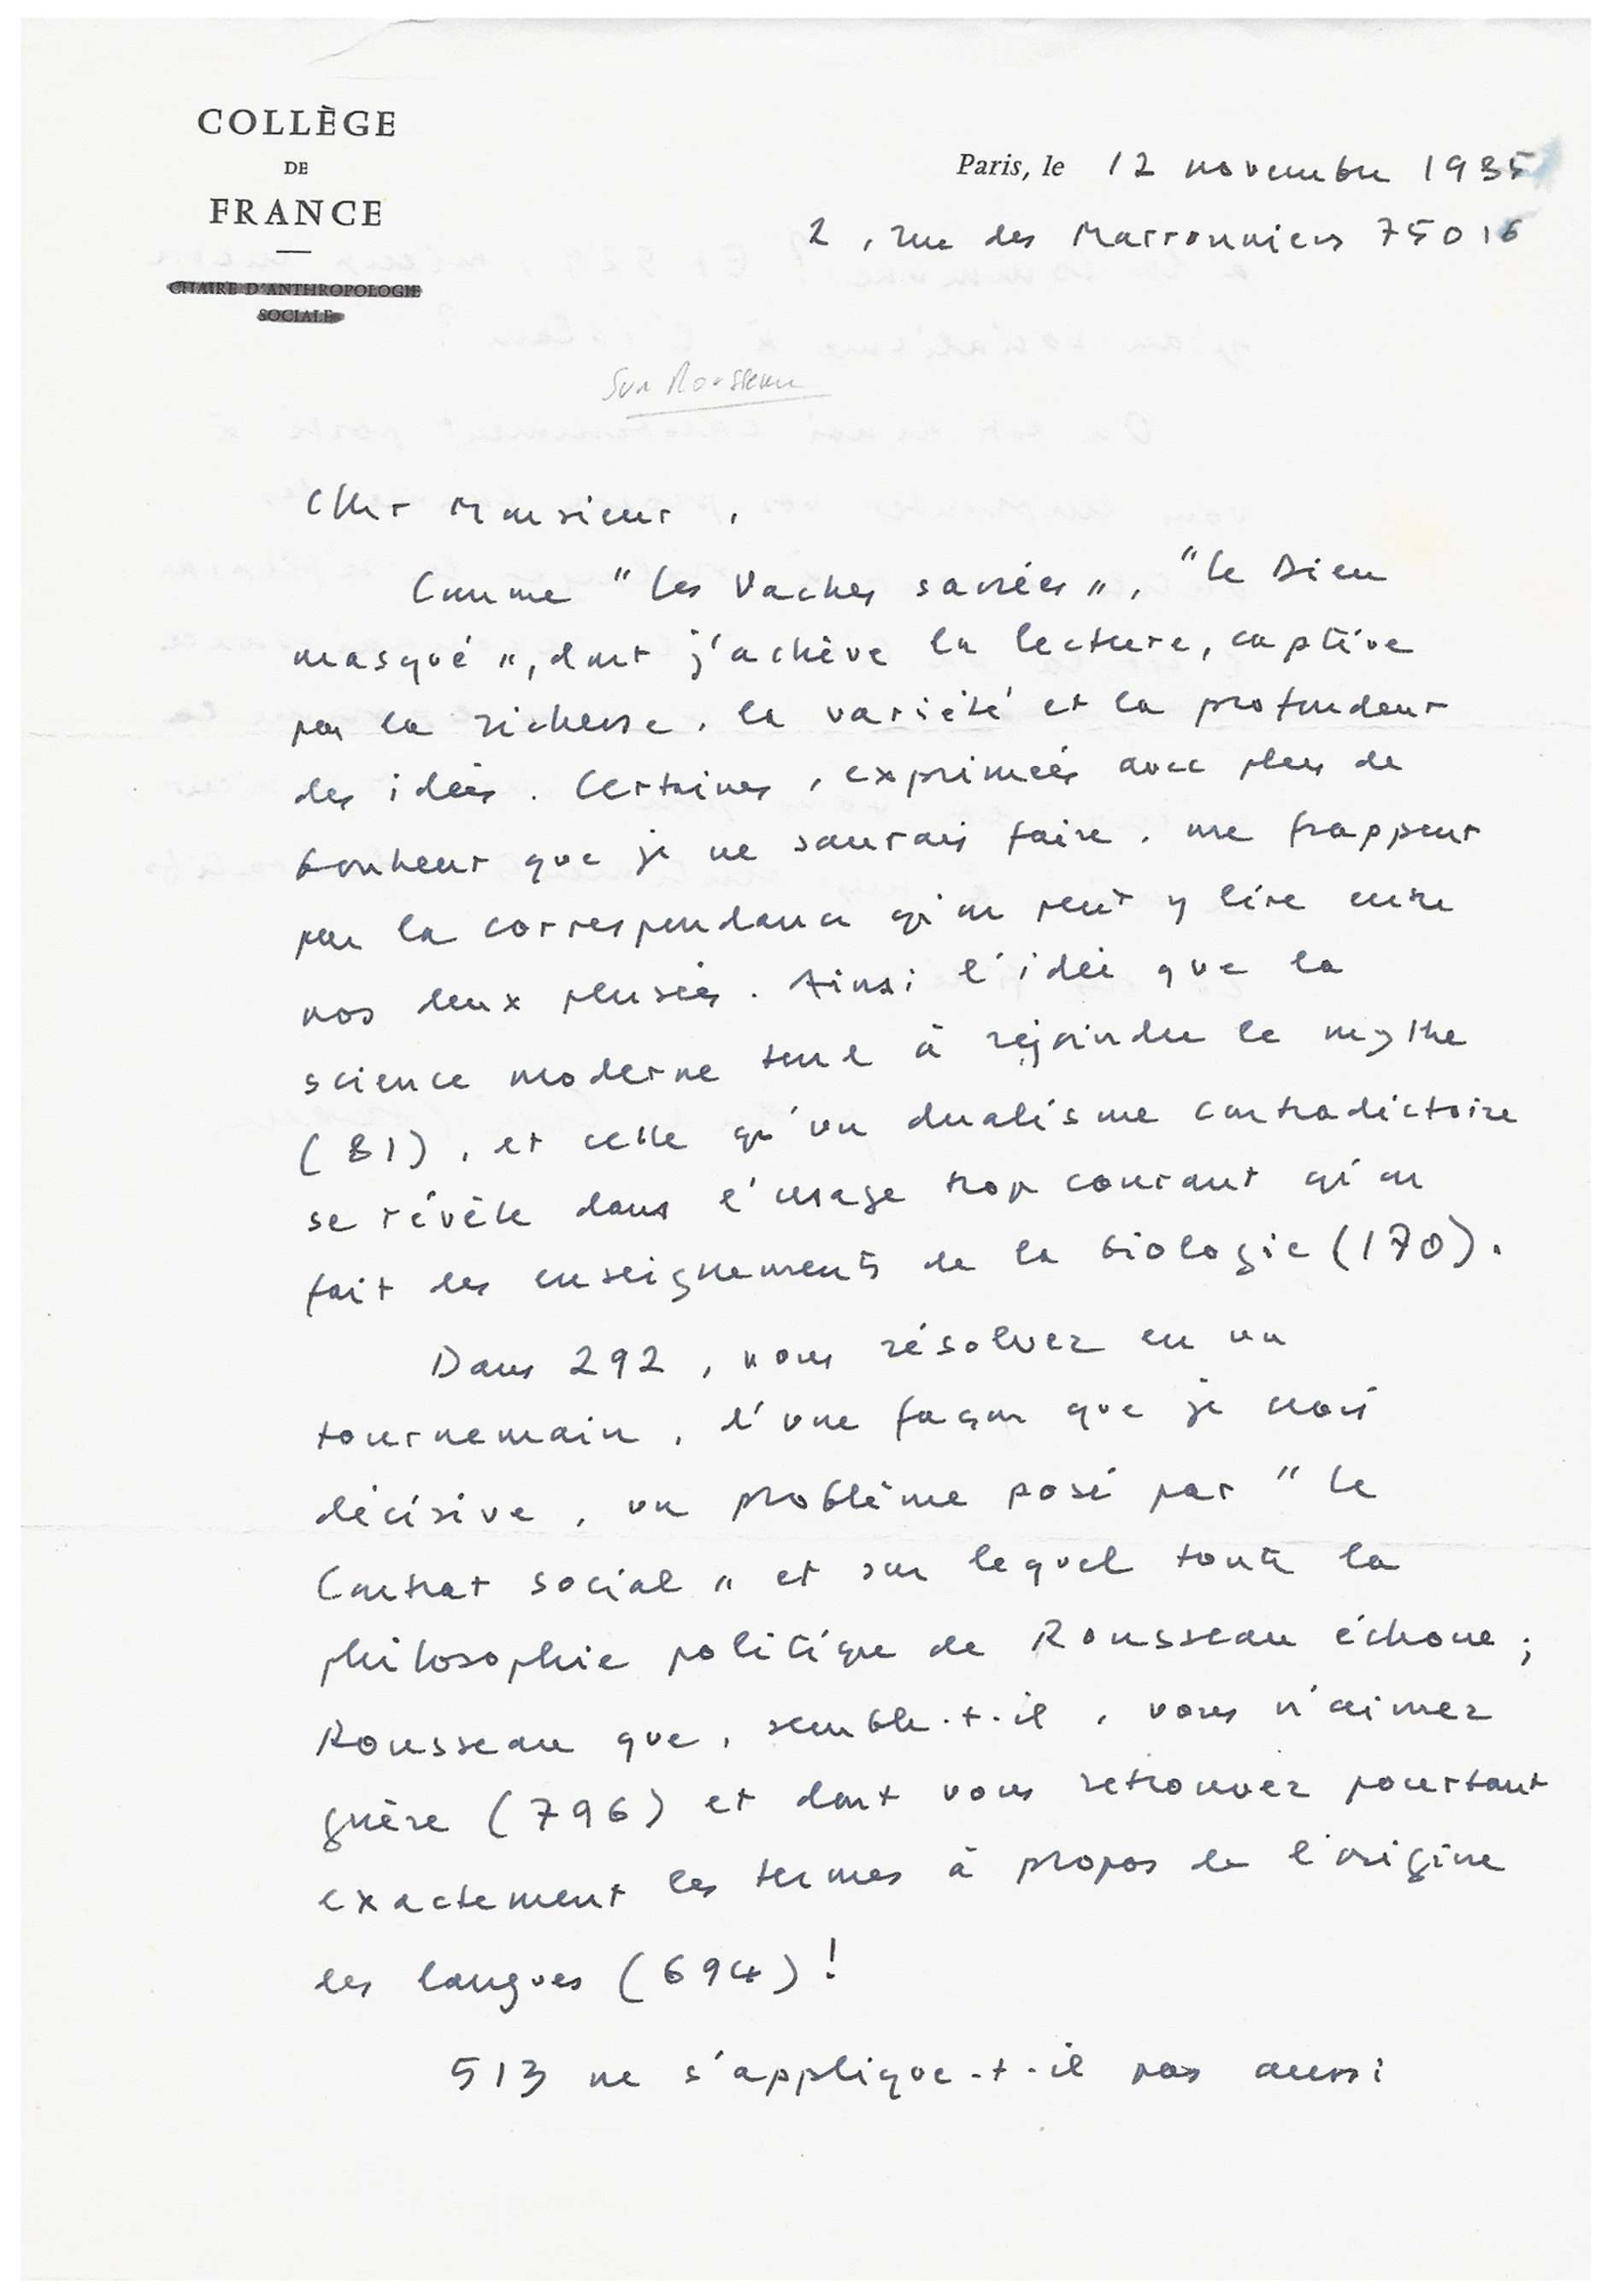 COLLÈGE
DE
FRANCE
CHAIRE D'ANTHROPOLOGIE
SOCIALE
Paris, le 12 novembre 1985
2, rue des Marronniers 75016
Sur Rousseau
Cher Monsieur,
Comme "Les Vaches sacrées", "Le Dieu
masqué", dont j'achève la lecture, captive
par la richesse, la variété et la profondeur
des idées. Certaines, exprimées avec plus de
bonheur que je ne saurais faire, me frappent
par la correspondance qu'on peut y lire entre
nos deux pensées. Ainsi l'idée que la
science moderne tend à rejoindre le mythe
(81), et celle qu'un dualisme contradictoire
se révèle dans l'usage trop courant qu'on
fait des enseignements de la biologie (170).
Dans 292, vous résolvez en un
tournemain, d'une façon que je crois
décisive, un problème posé par "Le
Contrat social" et sur lequel toute la
philosophie politique de Rousseau échoue;
Rousseau que, semble-t-il, vous n'aimez
guère (796) et dont vous retrouvez pourtant
exactement les termes à propos de l'origine
des langues (694)!
513 ne s'applique-t-il pas aussi